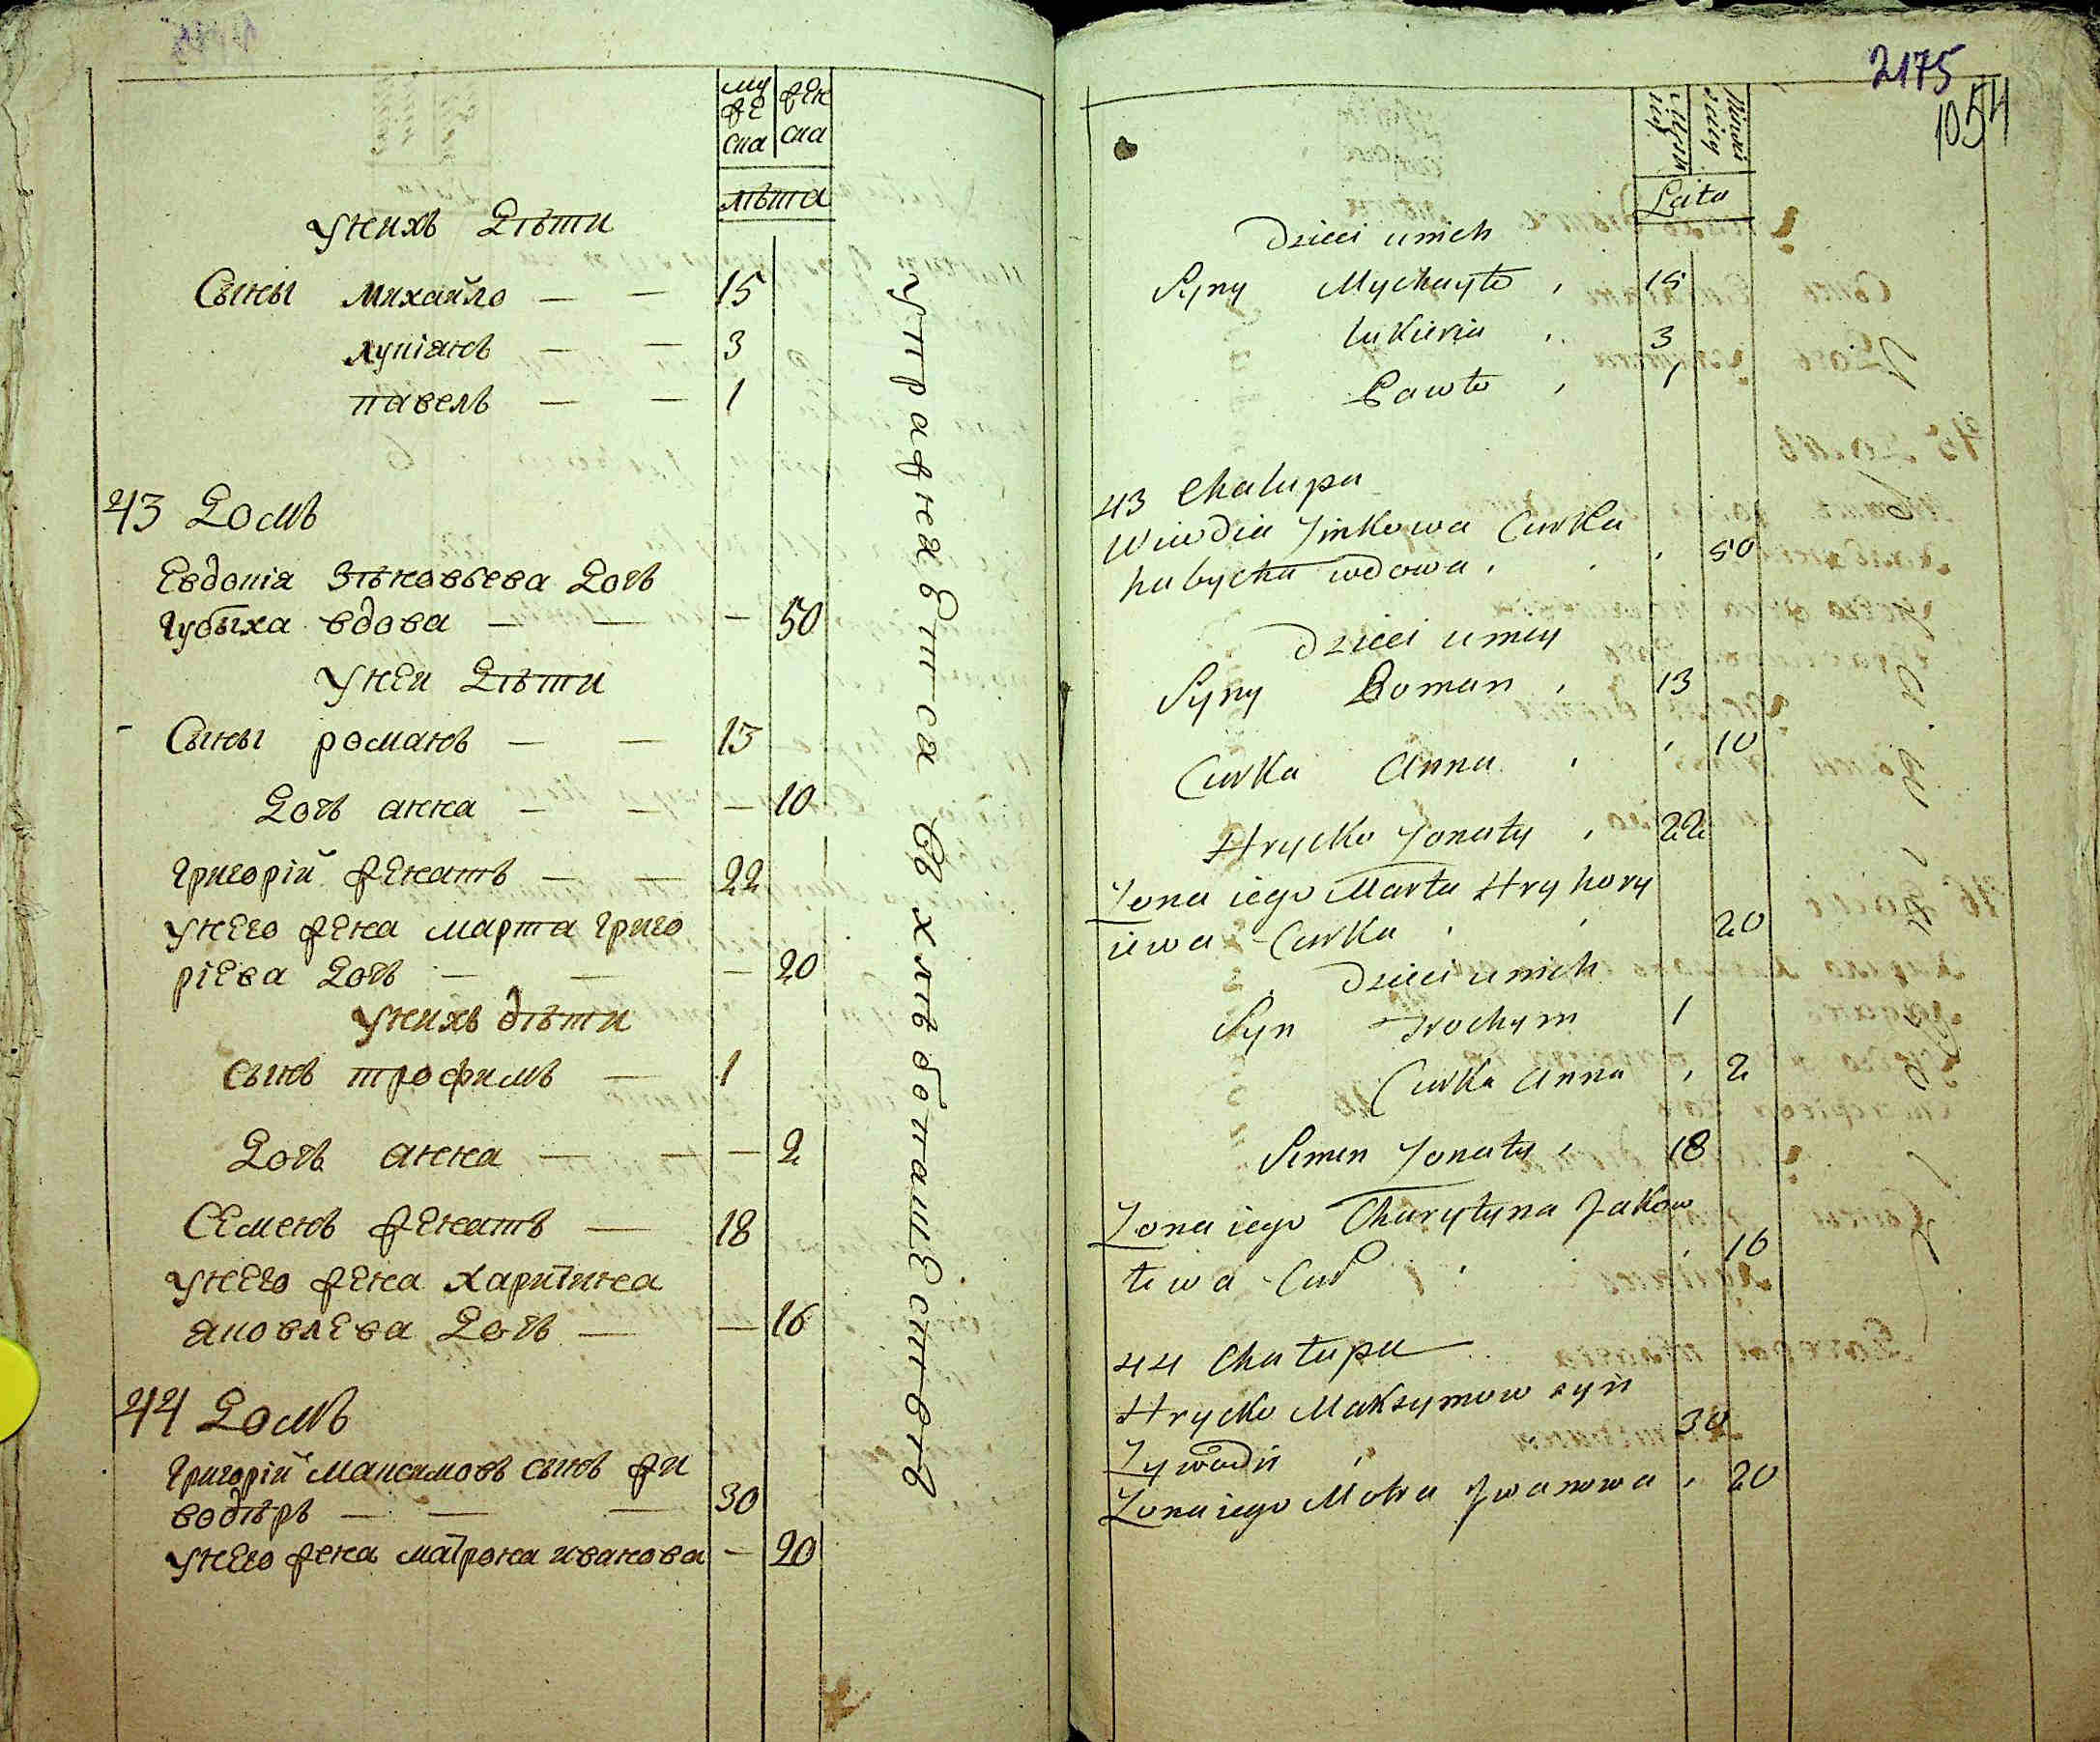 му
же
ска
жен
ска
лѣта
у нихъ Дѣти
Сыны михайло — — 15
лукіанъ — — 3
павелъ — — 1
43 Домъ
Евдокія Зѣновьева Дочь
губыха вдова — — — 50
у неи Дѣти
Сыны романъ — — 13
Дочь анна — — — 10
григорій женатъ — — 22
у него жена марта григо
ріева Дочь — — — 20
у нихъ дѣти
сынъ трофимъ — 1
Дочь анна — — — 2
Семенъ женатъ — 18
у него жена харитина
яковлева Дочь — — 16
44 Домъ
григорій максимовъ сынъ жи
водѣръ — — — 30
у него жена матрона иванова — 20
упражнаеится въ хлѣбопашествѣ
2175
1054
Lata
Dzieci u nich
Syny Mychayło , 15
Łukieria , 3
Pawło , 1
43 Chalupa
Wiwdia Zinkowa Curka
hubycha wdowa , , 50
Dzieci u niey
Syny Roman , 13
Curka Anna , , 10
Hrycko Zonaty , 22
Zona iego Marta Hryhory
iewa Curka , , 20
Dzieci u nich
Syn Trochym 1
Curka Anna , 2
Semen Zonaty , 18
Zona iego Charytyna Jakow
lewa Cur , , 16
44 Chałupa
Hrycko Maksymow syn
Zywodir , 30
Zona iego Motra Iwanowa , 20